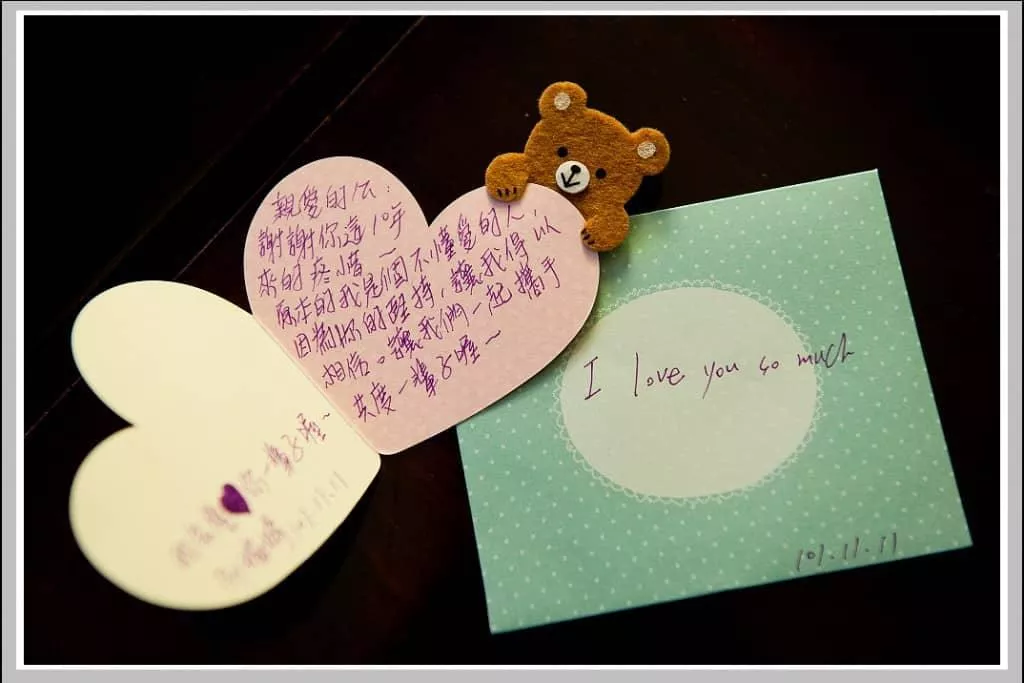 親愛的公:
謝謝你這10年
來的疼惜~
原本的我是個不懂愛的人
因為你的堅持,讓我得以
相信。讓我們一起攜手
共度一輩子喔~
你一輩子喔~
101.11.11
I love you so much
101.11.11